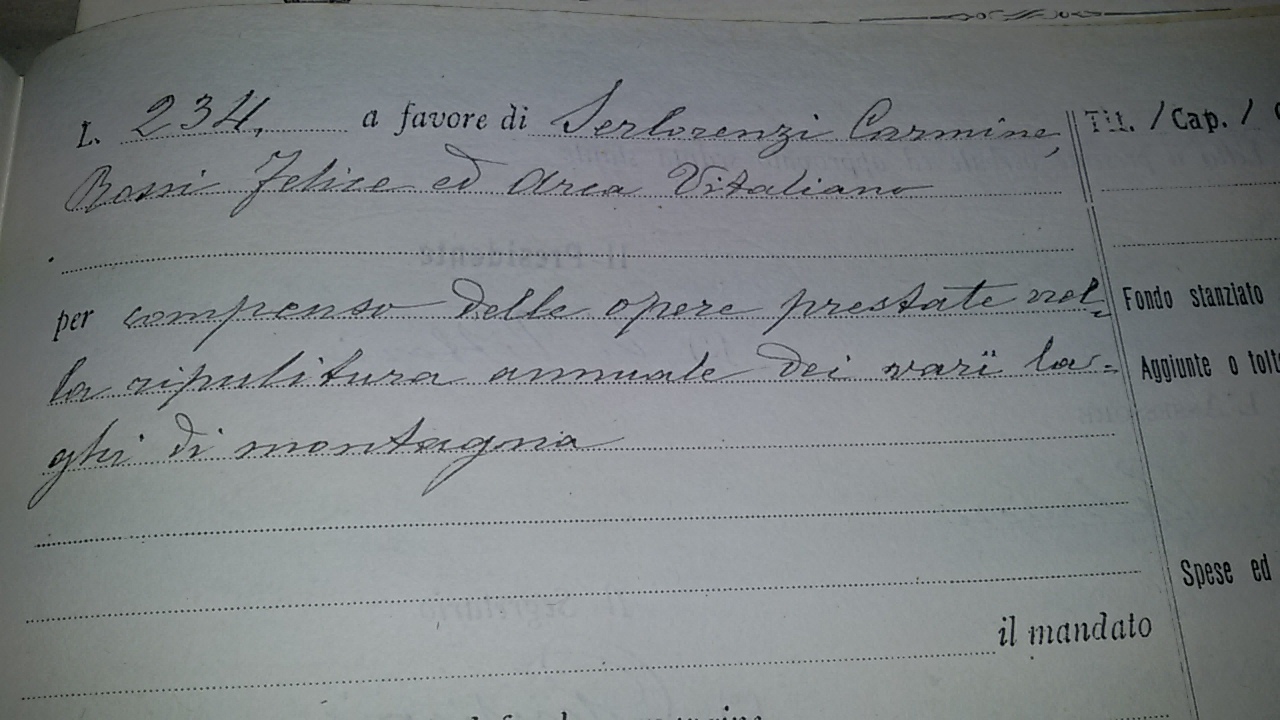 L. 234. a favore di Serlorenzi Carmine,
Rossi Felice ed Arca Vitaliano
per compenso delle opere prestate nel=
la ripulitura annuale dei varii la=
ghi di montagna
il mandato
Tit. / Cap. /
Fondo stanziato
Aggiunte o tolt
Spese ed